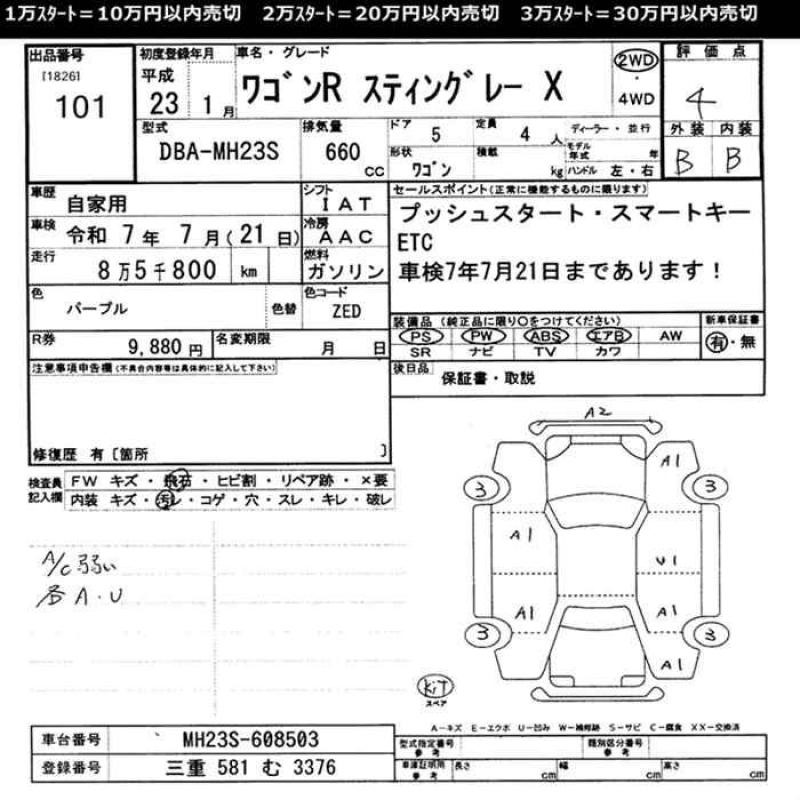 1万ｽﾀｰﾄ＝10万円以内売切　2万ｽﾀｰﾄ＝20万円以内売切　3万ｽﾀｰﾄ＝30万円以内売切
出品番号
[1826]
101
初度登録年月
平成
23 1月
車名・グレード
ワゴンR スティングレー X
2WD
4WD
評価点
4
外装 内装
B B
型式
DBA-MH23S
排気量
660 cc
ドア 5
定員 4 人
ディーラー・並行
形状 ワゴン
積載 kg
モデル年式 年
ハンドル 左・右
車歴 自家用
シフト IAT
車検 令和 7年 7月(21日)
冷房 AAC
走行 8万5千800 km
燃料 ガソリン
色 パープル
色替
色コード ZED
R券 9,880円
名変期限 月 日
セールスポイント(正常に機能するものに限ります)
プッシュスタート・スマートキー
ETC
車検7年7月21日まであります！
装備品 (純正品に限り〇をつけてください)
PS PW ABS エアB AW
SR ナビ TV カワ
新車保証書
有・無
後日品 保証書・取説
注意事項申告欄(不具合内容等は具体的に記入して下さい)
修復歴 有〔箇所 〕
検査員記入欄
FW キズ・飛石・ヒビ割・リペア跡・×要
内装 キズ・汚レ・コゲ・穴・スレ・キレ・破レ
A/C弱い
各A・U
A2
A1
3 3
A1
U1
A1 A1
3 3
A1
キT
スペア
A－キズ E－エクボ U－凹み W－補修跡 S－サビ C－腐食 XX－交換済
車台番号 MH23S-608503
登録番号 三重 581 む 3376
型式指定番号 参考
類別区分番号 参考
車庫証明用 参考
長さ cm 幅 cm 高さ cm